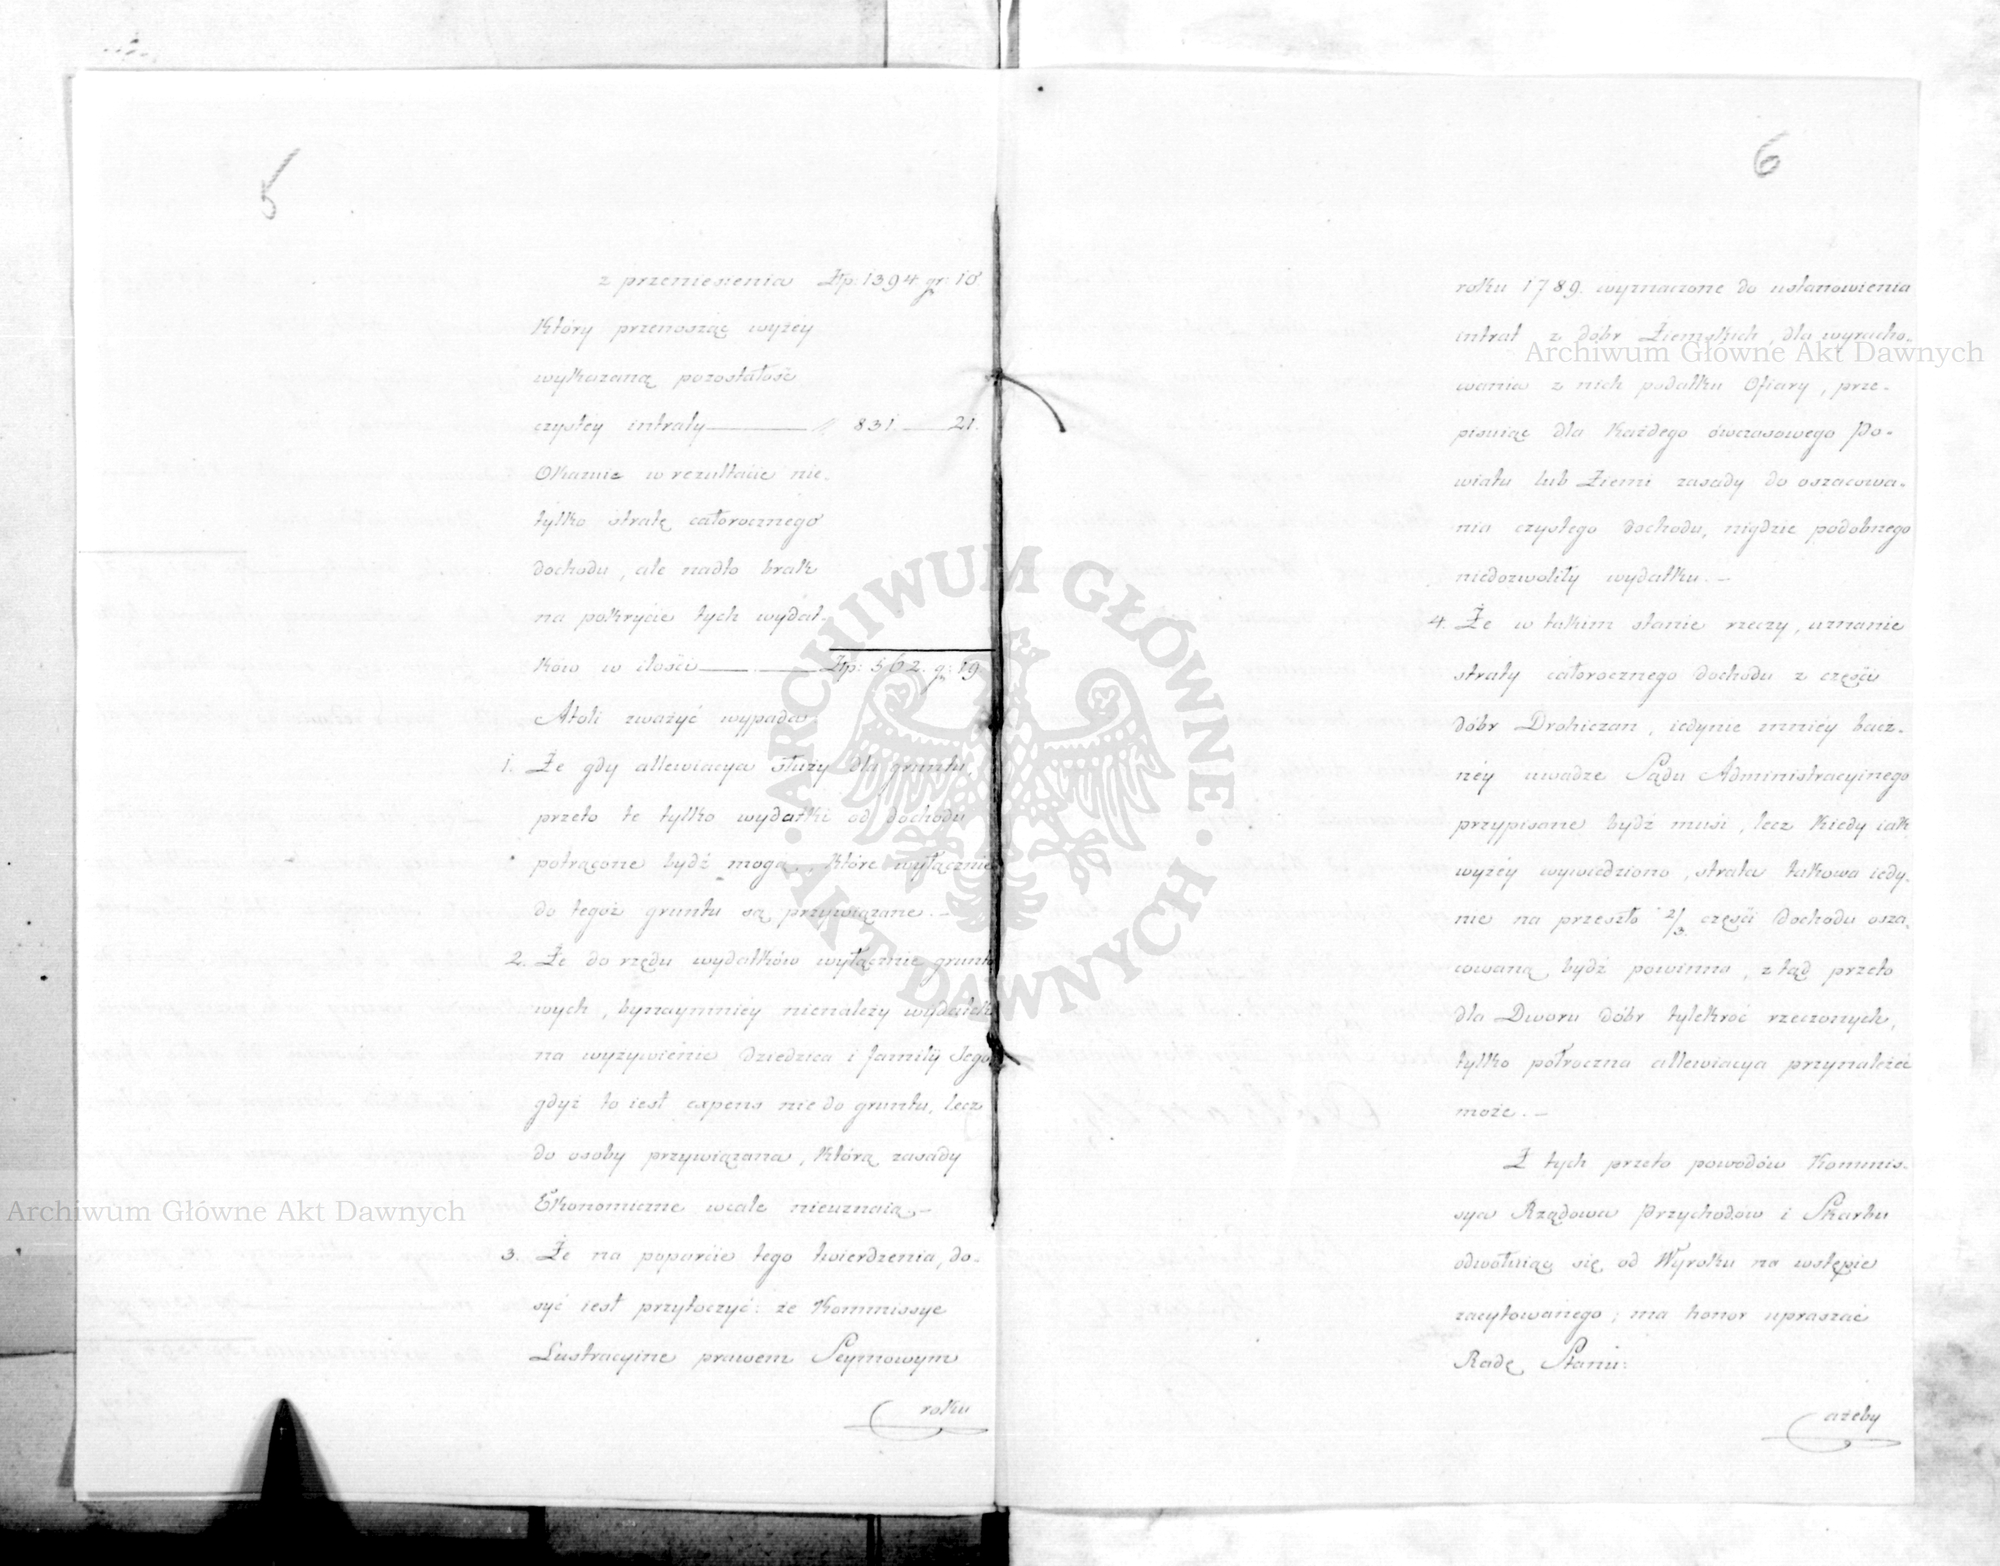 5
z przeniesienia Złp: 1394 gr: 10
Który przenosząc wyżéy
wykazaną pozostałość
czystéy intraty — // 831. — 21.
Okazuie w rezultacie nie-
tylko stratę całorocznego
dochodu, ale nadto brak
na pokrycie tych wydat-
ków w ilości — Złp: 562. gr: 19
Atoli zważyć wypada
1. Że gdy allewiacya służy dla gruntu,
przeto te tylko wydatki od dochodu
potrącone bydź mogą, które wyłącznie
do tegoż gruntu są przywiązane. —
2. Że do rzędu wydatków wyłącznie grunto
wych, bynaymniéy nienależy wydatek
na wyżywienie Dziedzica i familÿ Jego
gdyż to iest expens nie do gruntu, lecz
do osoby przywiązana, którą zasady
Ekonomiczne wcale nieuznaią —
3. Że na poparcie tego twierdzenia, do-
syć iest przytoczyć: że Kommissye
Lustracyine prawem Seymowym
roku
6
roku 1789. wyznaczone do ustanowienia
intrat z dóbr Ziemskich, dla wyracho-
wania z nich podatku Ofiary, prze-
pisuiąc dla każdego ówczasowego Po-
wiatu lub Ziemi zasady do oszacowa-
nia czystego dochodu, nigdzie podobnego
niedozwoliły wydatku. —
4. Że w takim stanie rzeczy, uznanie
straty całorocznego dochodu z części
dóbr Drohiczan, iedynie mniéy bacz-
néy uwadze Sądu Administracyinego
przypisane bydź musi, lecz kiedy iak
wyżéy wywiedziono, strata takowa iedy-
nie na przeszło 2/3. części dochodu osza-
cowaną bydź powinna, ztąd przeto
dla Dworu dóbr tylekroć rzeczonych,
tylko półroczna allewiacya przynależeć
może. —
Z tych przeto powodów Kommis-
sya Rządowa Przychodów i Skarbu
odwołuiąc się od Wyroku na wstępie
zacytowanego; ma honor upraszać
Radę Stanu:
ażeby
Archiwum Główne Akt Dawnych
Archiwum Główne Akt Dawnych
ARCHIWUM GŁÓWNE
AKT DAWNYCH